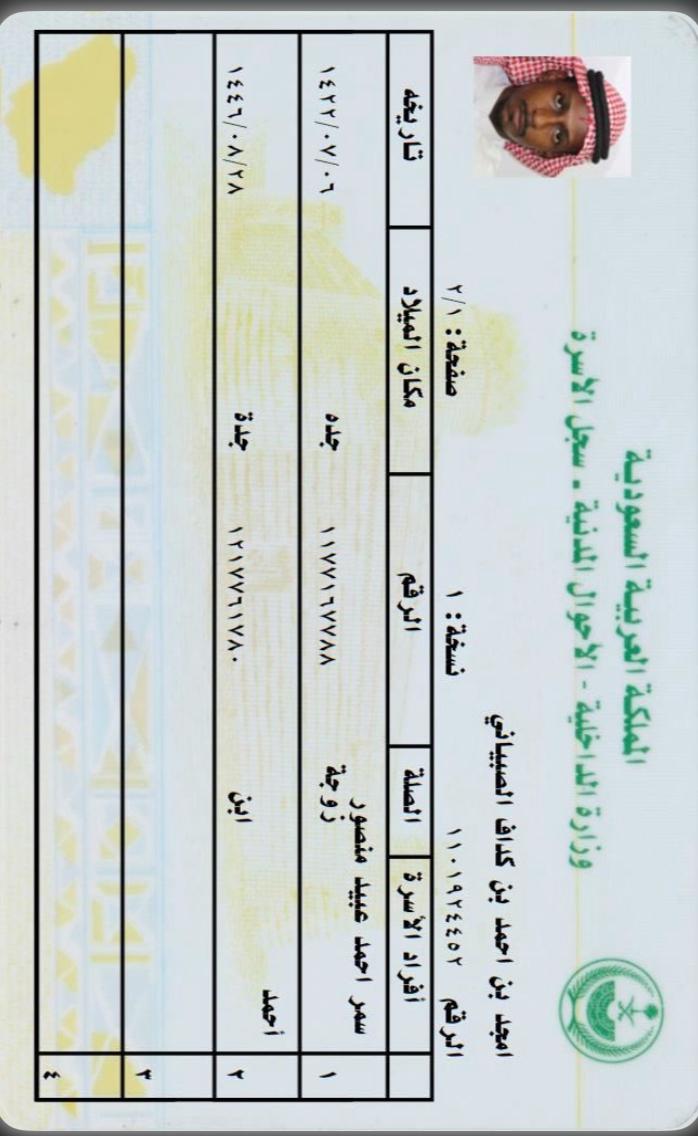 المملكة العربية السعودية
وزارة الداخلية - الأحوال المدنية - سجل الأسرة
امجد بن احمد بن كداف الصبياني
الرقم ١١٠١٩٢٤٤٥٢ نسخة: ١ صفحة: ٢/١
أفراد الأسرة الصلة الرقم مكان الميلاد تاريخه
١ سمر احمد عبيد منصور زوجة ١١٧٧١٦٧٧٨٨ جده ١٤٢٢/٠٧/٠٦
٢ أحمد ابن ١٢١٧٧٦١٧٨٠ جدة ١٤٤٦/٠٨/٢٨
٣
٤